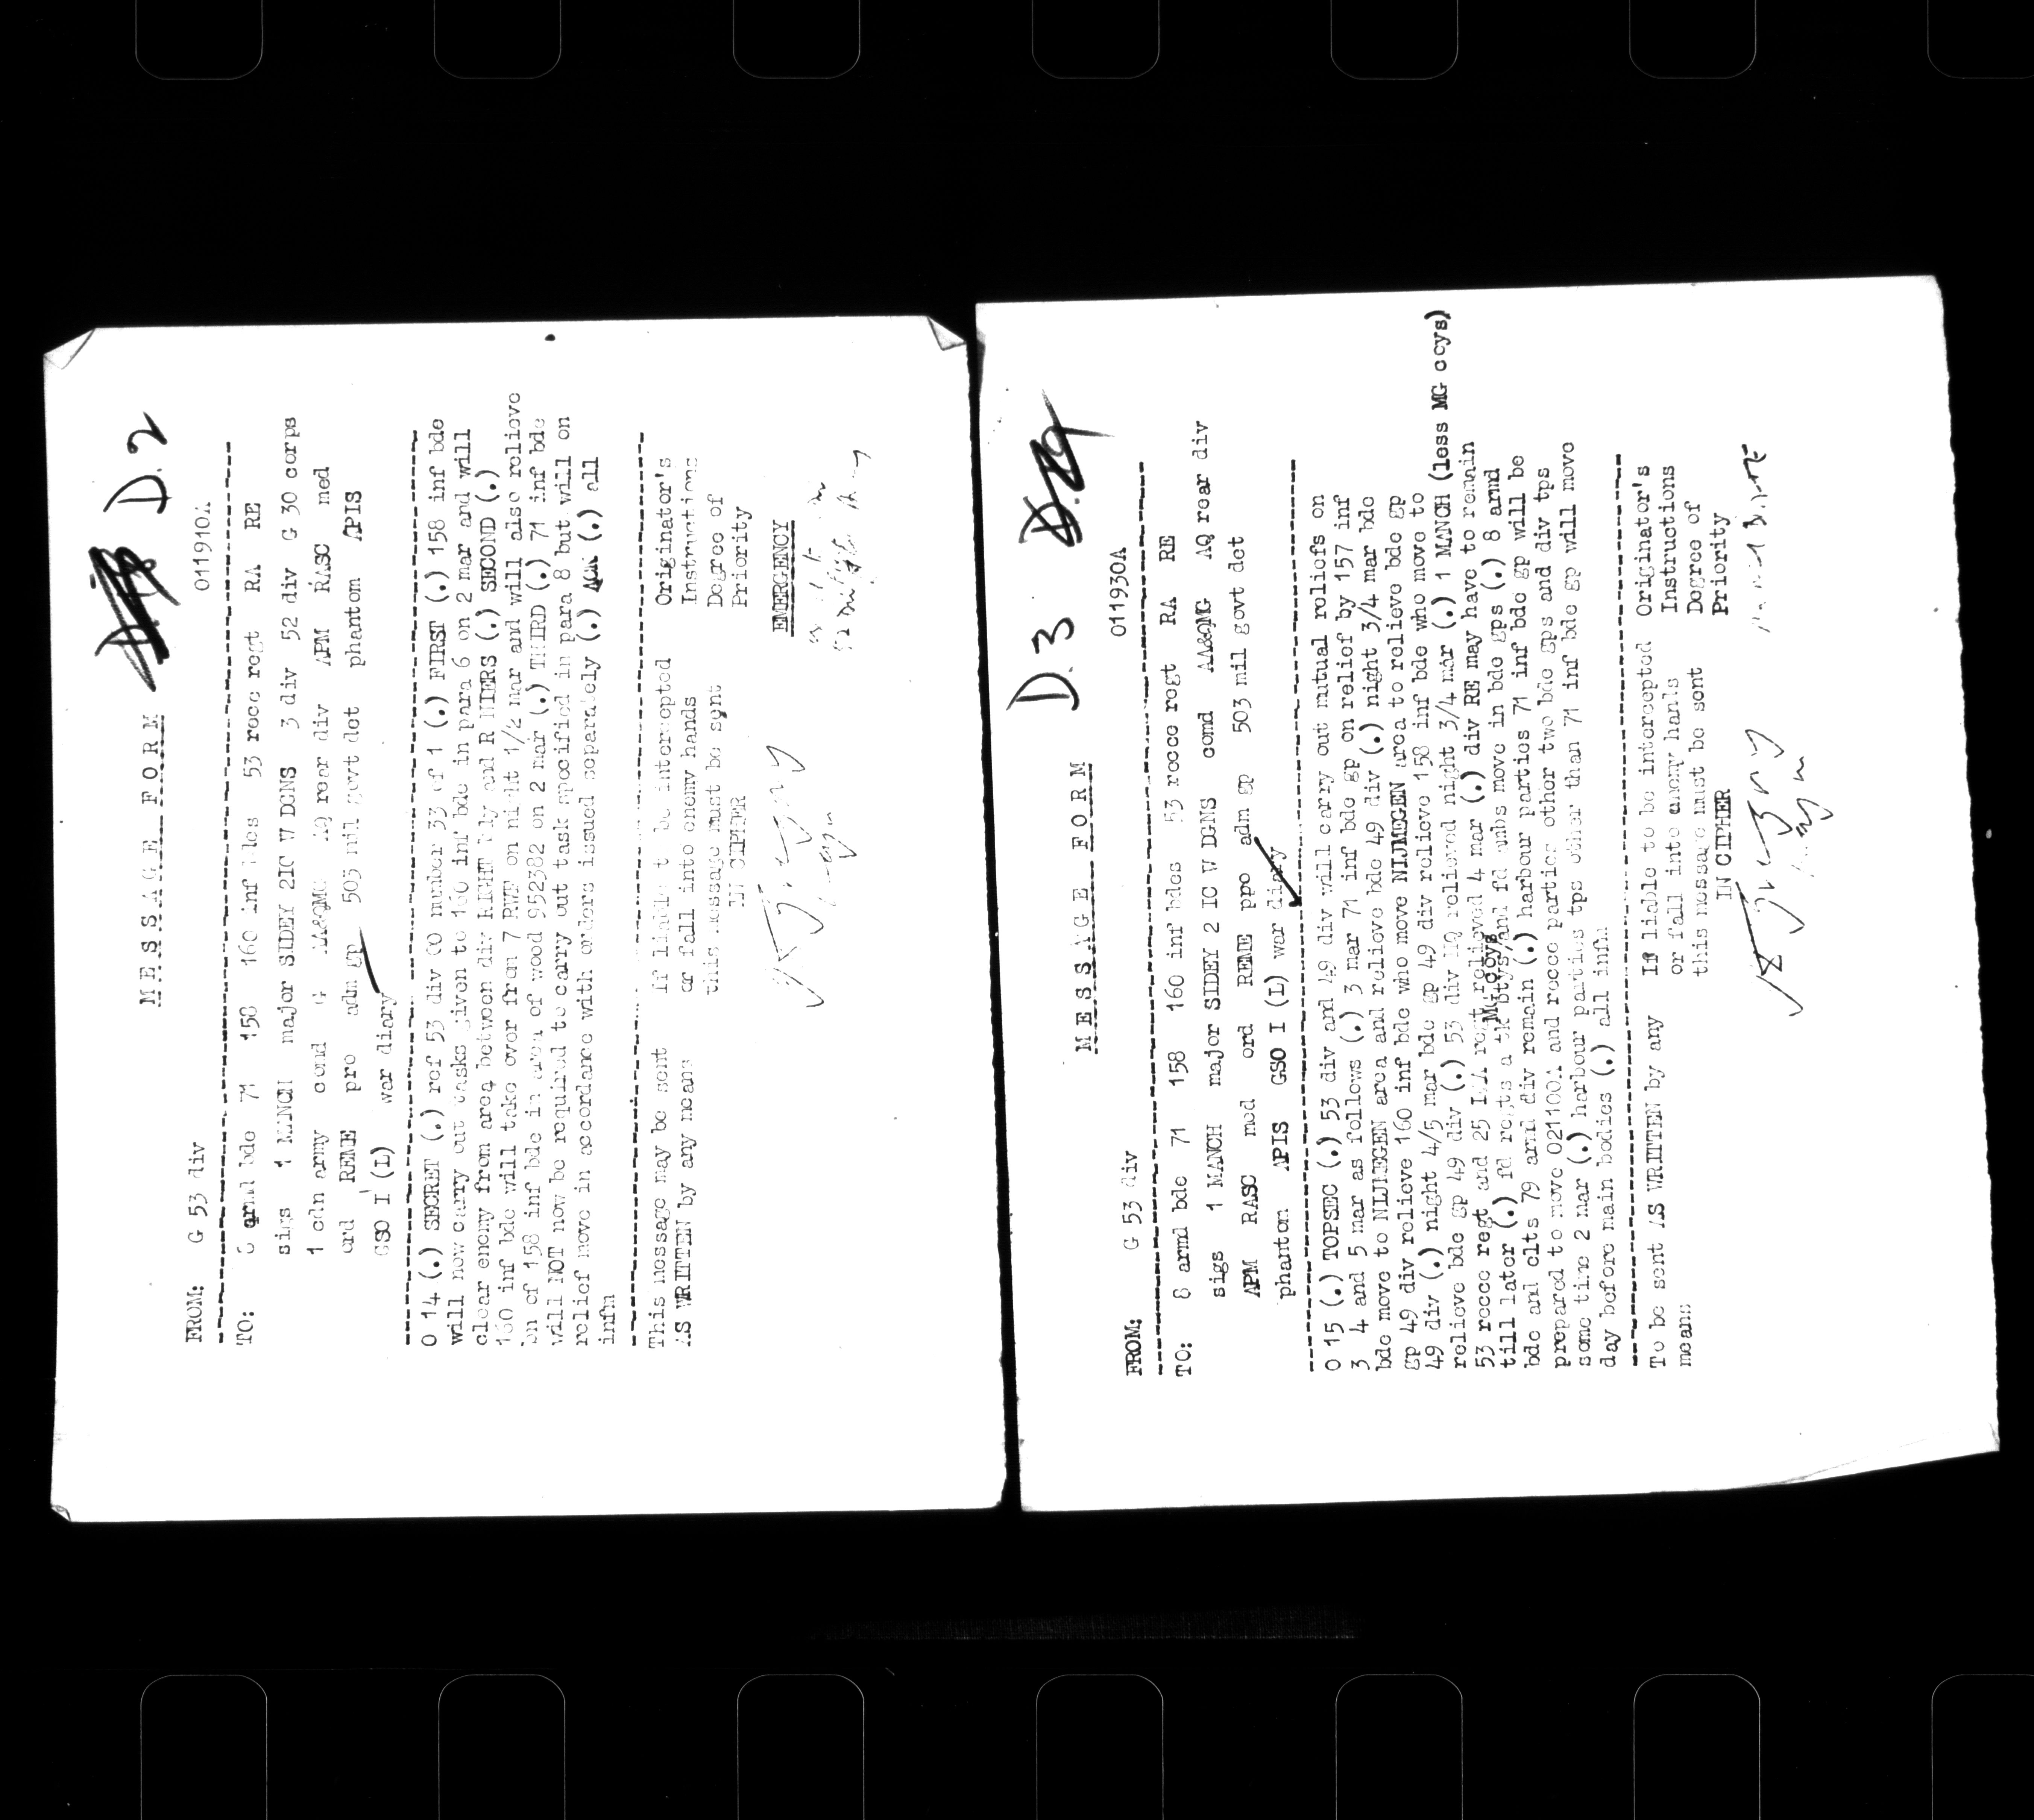 D.2
MESSAGE FORM
011910A
FROM: G 53 div
TO: 8 armd bde 71 158 160 inf bdes 53 recce regt RA RE
sigs 1 MANCH major SIDEY 2IC W DGNS 3 div 52 div G 30 corps
1 cdn army comd G AA&QMG AQ rear div APM RASC med
ord REME pro adm gp 503 mil govt det phantom APIS
GSO I (L) war diary
O 14 (.) SECRET (.) ref 53 div OO number 33 of 1 (.) FIRST (.) 158 inf bde
will now carry out tasks given to 160 inf bde in para 6 on 2 mar and will
clear enemy from area between div RIGHT bdy and R NIERS (.) SECOND (.)
160 inf bde will take over from 7 RWF on night 1/2 mar and will also relieve
bn of 158 inf bde in area of wood 952382 on 2 mar (.) THIRD (.) 71 inf bde
will NOT now be required to carry out task specified in para 8 but will on
relief move in accordance with orders issued separately (.) ACK (.) all
infm
This message may be sent If liable to be intercepted Originator's
AS WRITTEN by any means or fall into enemy hands Instructions
this message must be sent Degree of
IN CIPHER Priority
EMERGENCY
D.3
MESSAGE FORM
011930A
FROM: G 53 div
TO: 8 armd bde 71 158 160 inf bdes 53 recce regt RA RE
sigs 1 MANCH major SIDEY 2 IC W DGNS comd AA&QMG AQ rear div
APM RASC med ord REME ppo adm gp 503 mil govt det
phantom APIS GSO I (L) war diary
O 15 (.) TOPSEC (.) 53 div and 49 div will carry out mutual reliefs on
3 4 and 5 mar as follows (.) 3 mar 71 inf bde gp on relief by 157 inf
bde move to NIJMEGEN area and relieve bde 49 div (.) night 3/4 mar bde
gp 49 div relieve 160 inf bde who move NIJMEGEN area to relieve bde gp
49 div (.) night 4/5 mar bde gp 49 div relieve 158 inf bde who move to
relieve bde gp 49 div (.) 53 div HQ relieved night 3/4 mar (.) 1 MANCH (less MG coys)
53 recce regt and 25 LAA regt relieved 4 mar (.) div RE may have to remain
till later (.) fd regts a tk btys MG coys and fd ambs move in bde gps (.) 8 armd
bde and elts 79 armd div remain (.) harbour parties 71 inf bde gp will be
prepared to move 021100A and recce parties other two bde gps and div tps
some time 2 mar (.) harbour parties tps other than 71 inf bde gp will move
day before main bodies (.) all infm
To be sent AS WRITTEN by any If liable to be intercepted Originator's
means or fall into enemy hands Instructions
this message must be sent Degree of
IN CIPHER Priority